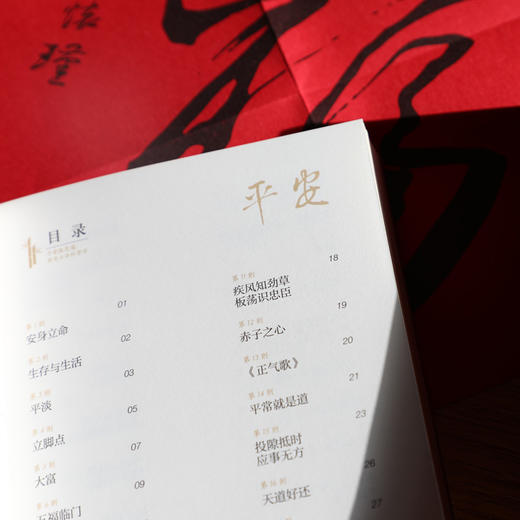 怀瑾
平安
目录
01
第1则
安身立命
02
第2则
生存与生活
03
第3则
平淡
05
第4则
立脚点
07
第5则
大富
09
第6则
五福临门
18
第11则
疾风知劲草
板荡识忠臣
19
第12则
赤子之心
20
第13则
《正气歌》
21
第14则
平常就是道
23
第15则
投隙抵时
应事无方
26
第16则
天道好还
27